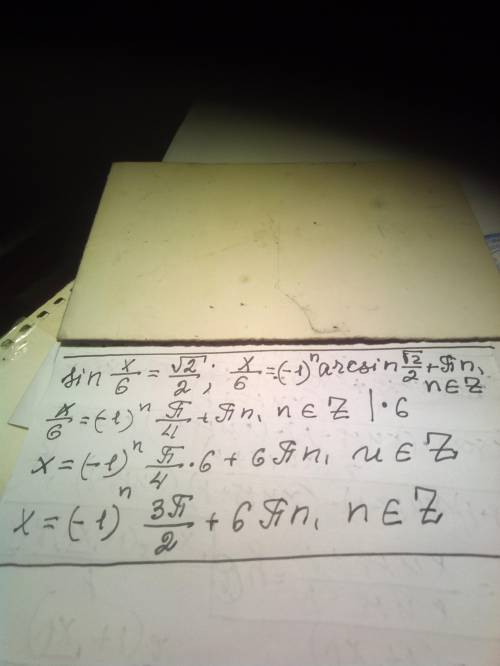 sin x/6 = √2/2; x/6 = (-1)^n arcsin √2/2 + πn, n ∈ Z
x/6 = (-1)^n π/4 + πn, n ∈ Z | · 6
x = (-1)^n π/4 · 6 + 6πn, n ∈ Z
x = (-1)^n 3π/2 + 6πn, n ∈ Z